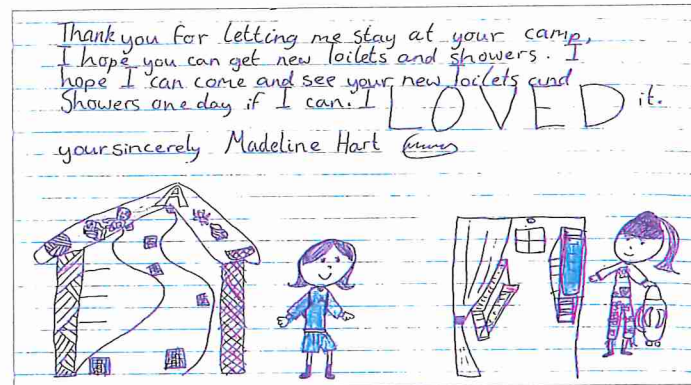 Thank you for letting me stay at your camp,
I hope you can get new toilets and showers. I
hope I can come and see your new toilets and
Showers one day if I can. I LOVED it.
your sincerely Madeline Hart